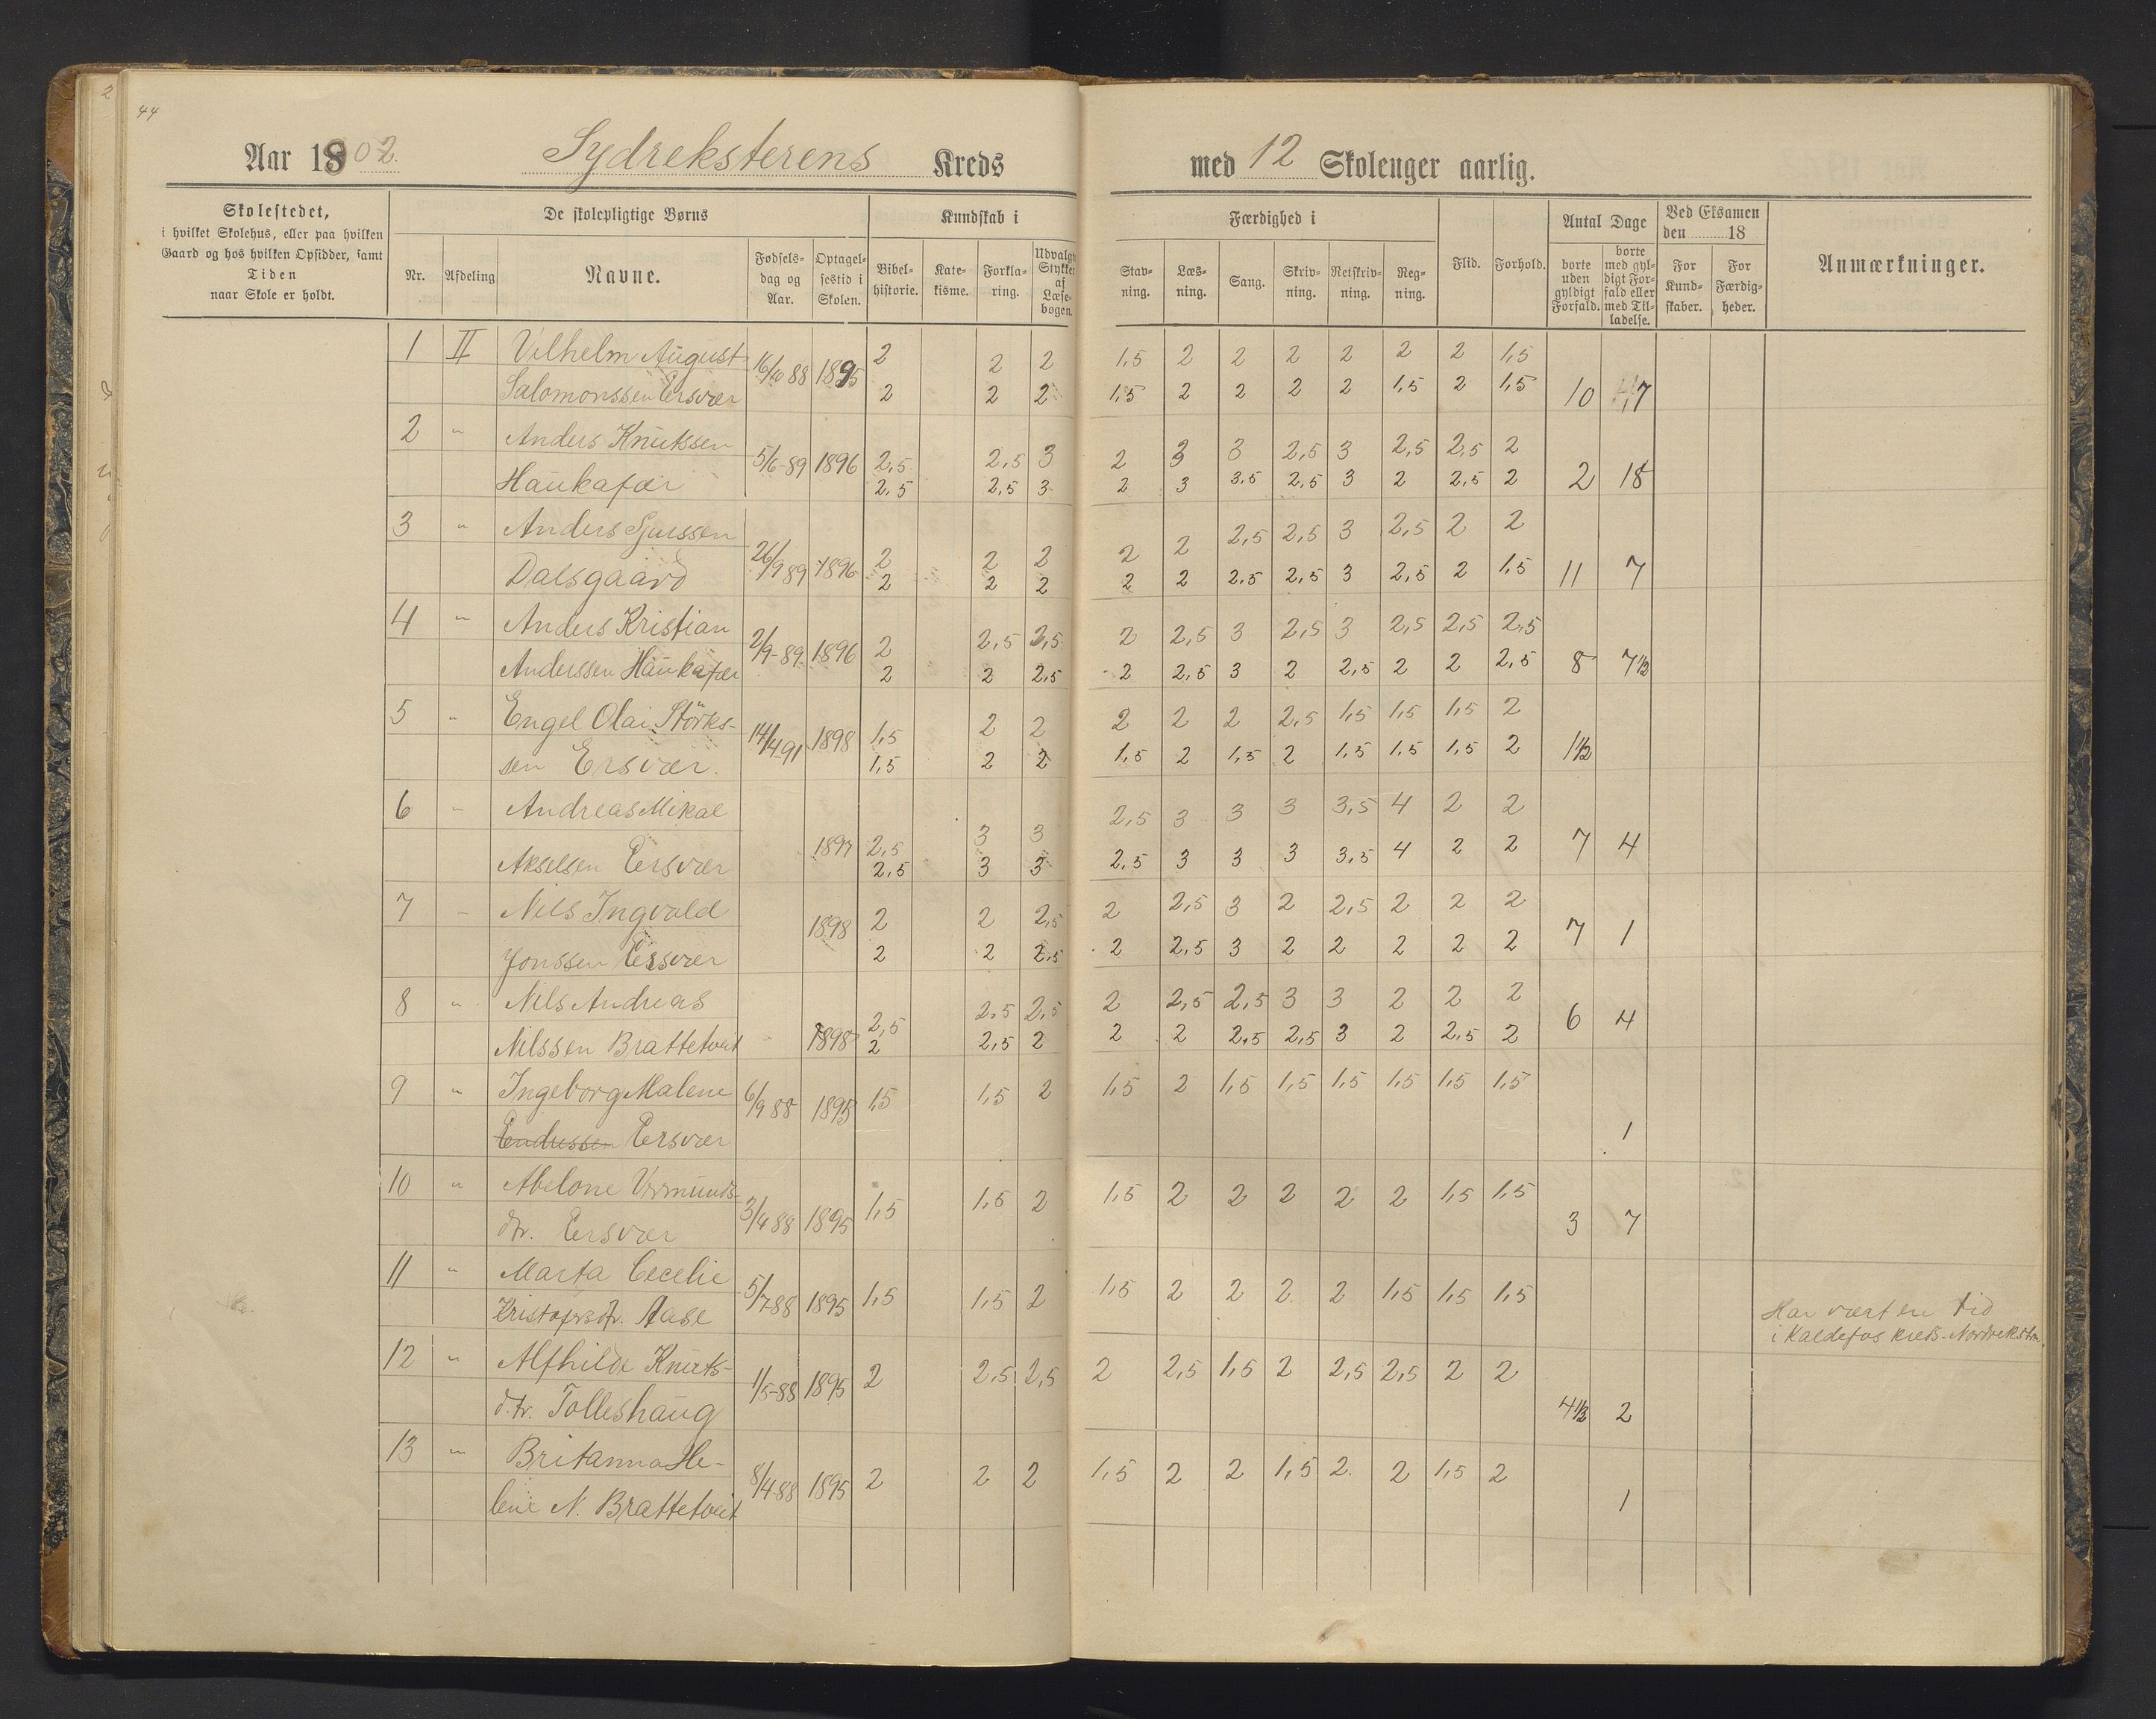 44
Aar 1902. Sydreksterens Kreds med 12 Skolenger aarlig.
Skolestedet,
i hvilket Skolehus, eller paa hvilken
Gaard og hos hvilken Opsidder, samt
Tiden
naar Skole er holdt.
De skolepligtige Børns
Nr. Afdeling Navne. Fødsels-dag og Aar. Optagel-sestid i Skolen.
Kundskab i
Bibel-historie. Kate-kisme. Forkla-ring. Udvalgte Stykker af Læse-bogen.
Færdighed i
Stav-ning. Læs-ning. Sang. Skriv-ning. Retskriv-ning. Reg-ning.
Flid. Forhold.
Antal Dage
borte uden gyldigt Forfald. borte med gyl-digt For-fald eller med Til-ladelse.
Ved Eksamen den 18
For Kund-skaber. For Færdig-heder.
Anmærkninger.
1 II Vilhelm August 2 2 2 1,5 2 2 2 2 2 2 1,5
Salomonssen Ersvær 88 1895 2 2 2 1,5 2 2 2 2 1,5 2 1,5 10 7
2 " Anders Knutssen 5/6-89 1896 2,5 2,5 3 2 3 3 2,5 3 2,5 2,5 2
Haukafær 2,5 2,5 3 2 3 3,5 2,5 3 2 2,5 2 2 18
3 " Anders Sjurssen 26/9 89 1896 2 2 2 2 2 2,5 2,5 3 2,5 2 2
Dalsgaard 2 2 2 2 2 2,5 2,5 3 2,5 2 1,5 11 7
4 " Anders Kristian 2/9-89 1896 2 2,5 2,5 2 2,5 3 2,5 3 2,5 2,5 2,5
Anderssen Haukafær 2 2 2,5 2 2,5 3 2 2,5 2 2 2,5 8 7½
5 " Engel Olai Störks- 14/4 91 1898 1,5 2 2 2 2 2 2,5 1,5 1,5 1,5 2
sen Ersvær. 1,5 2 2 1,5 2 1,5 2 1,5 1,5 1,5 2 1½
6 " Andreas Mikal 1897 2,5 3 3 2,5 3 3 3 3,5 4 2 2
Akselsen Ersvær 2,5 3 3 2,5 3 3 3 3,5 4 2 2 7 4
7 " Nils Ingvald 1898 2 2 2,5 2 2,5 3 2 2,5 2 2 2
Jonssen Ersvær 2 2 2,5 2 2,5 3 2 2 2 2 2 7 1
8 " Nils Andreas 1898 2,5 2,5 2,5 2 2,5 2,5 3 3 2 2 2
Nilssen Brattetveit 2 2,5 2 2 2 2,5 2,5 3 2 2,5 2 6 4
9 " Ingeborg Malene 6/9 88 1895 1,5 1,5 2 1,5 2 1,5 1,5 1,5 1,5 1,5 1,5
Endressen Ersvær 1
10 " Abelone Vermunds- 3/4 88 1895 1,5 1,5 2 1,5 2 2 2 2 2 1,5 1,5
dtr. Ersvær 3 7
11 " Marta Cecelie 5/7-88 1895 1,5 1,5 2 1,5 2 2 2 2 1,5 1,5 1,5
Kristofersdtr. Aase
Har vært en tid
i Kaldefos kreds - Nordreksteren
12 " Alfhilde Knuts- 1/5-88 1895 2 2,5 2,5 2 2,5 1,5 2 2,5 2,5 2 2
d.tr. Tolleshaug 4½ 2
13 " Britanna He- 8/4-88 1895 2 2 2 1,5 2 2 1,5 2. 2 1,5 2
lene N. Brattetveit 1